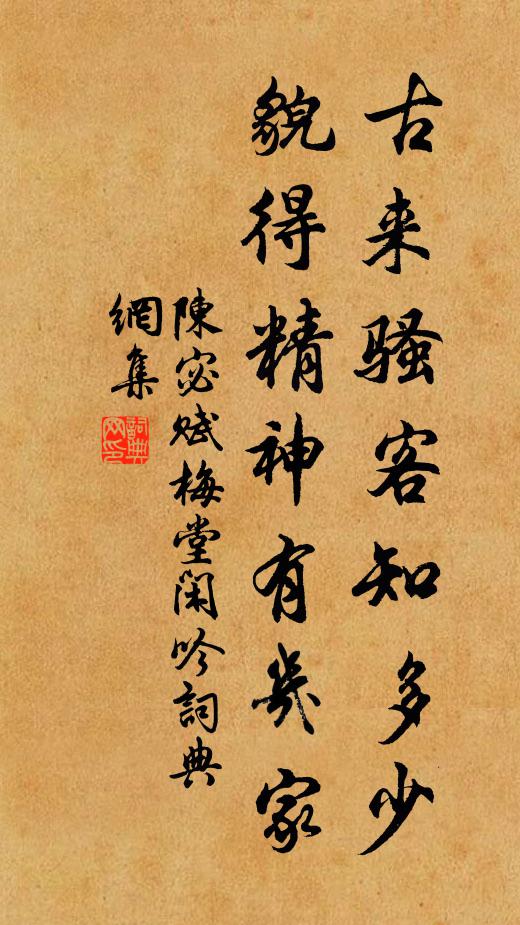 古来骚客知多少
貌得精神有幾家
陳宓賦梅堂闲吟詞典
網集
詞典
网印